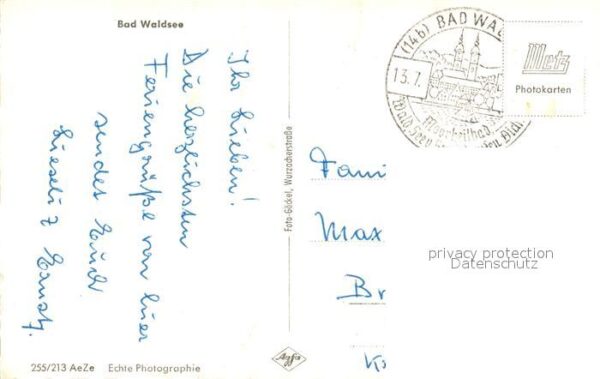 Bad Waldsee
Ihr Lieben!
Die herzlichsten
Feriengrüße von hier
sendet Euch
(14b) BAD WAL
13.7.
Moorheilbad
Metz
Photokarten
Foto-Göckel, Wurzacherstraße
Fami
Max
Br
privacy protection
Datenschutz
255/213 AeZe Echte Photographie
Agfa